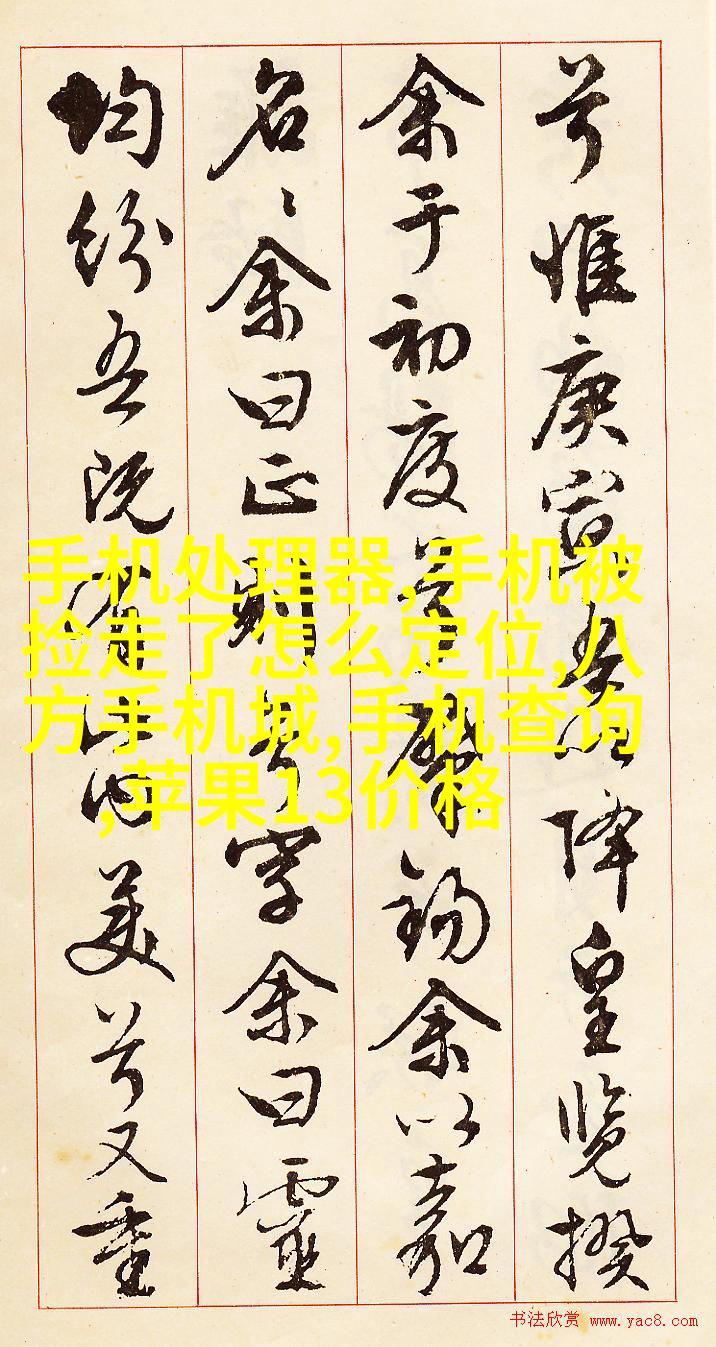 兮惟庚寅吾以降皇覽揆
余于初度兮肇錫余以嘉
名〻余曰正則兮字余曰靈
均紛吾既有此内美兮又重
手机处理器,手机被
捡走了怎么定位,八
方手机城,手机查询
,苹果13价格
书法欣赏 www.yac8.com